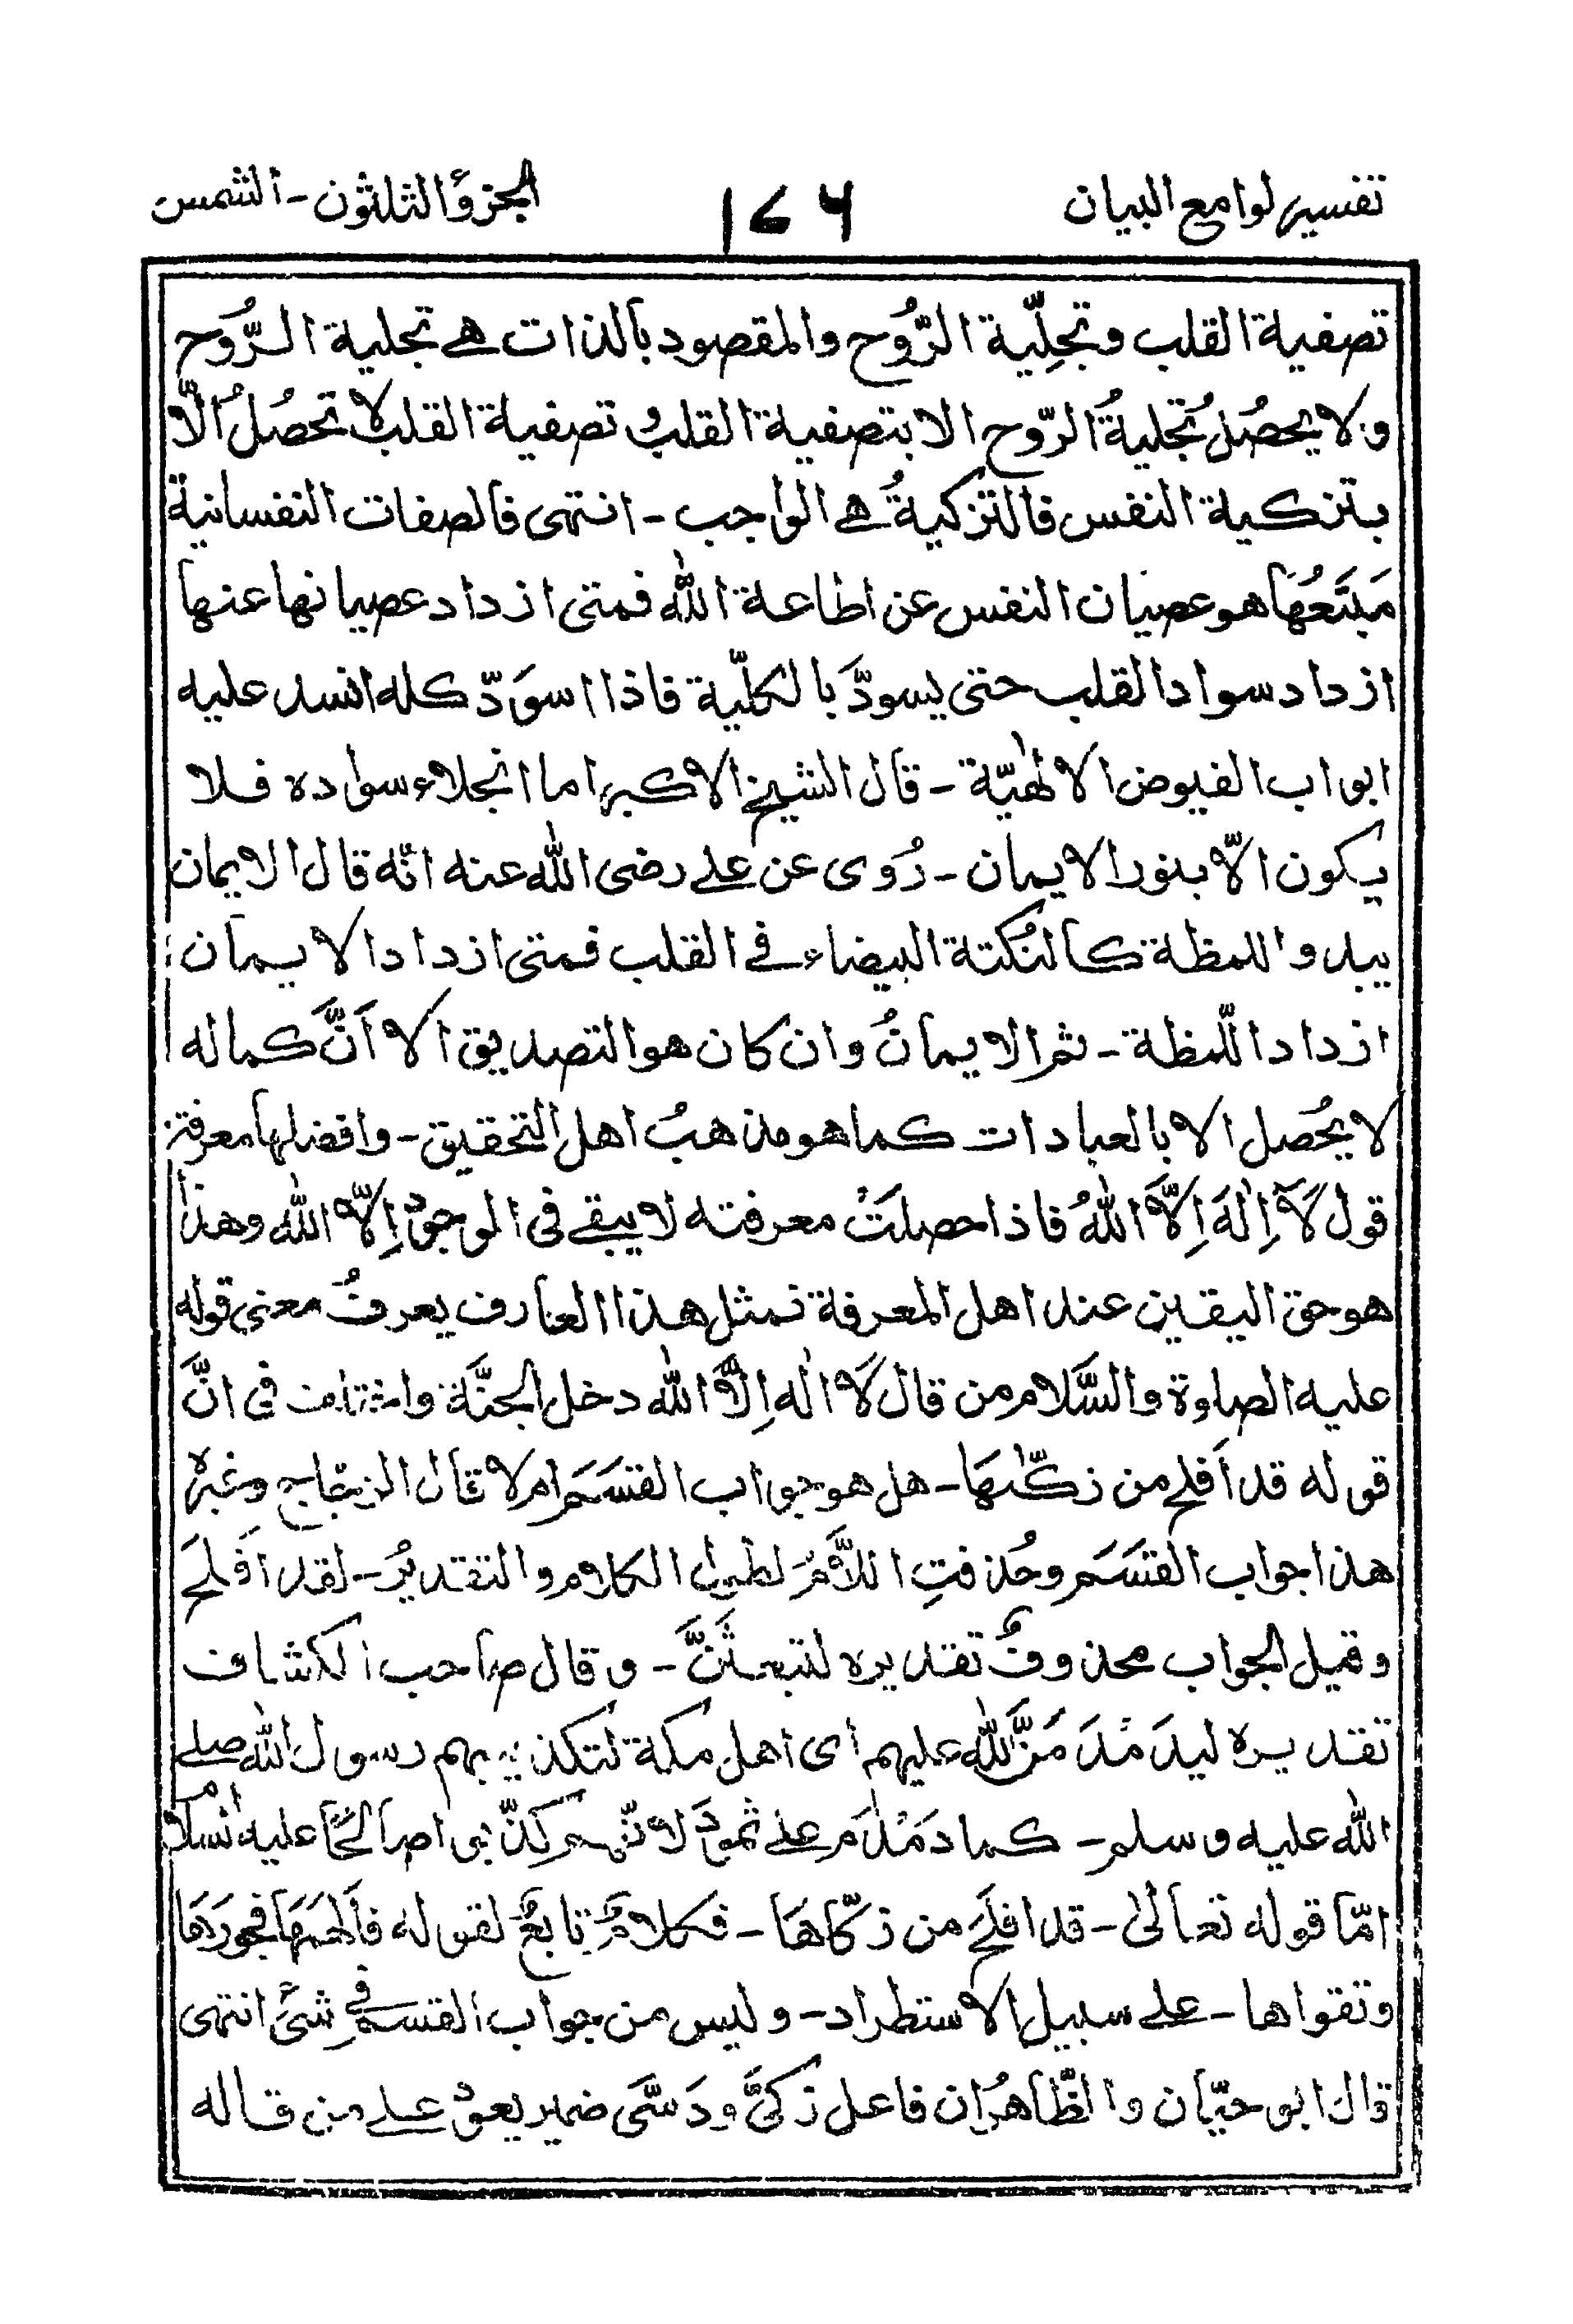 تفسير لوامع البيان ١٧٦ الجزؤ الثلثون - الشمس
تصفية القلب وتجلِّية الرُّوح والمقصود بالذات هے تجلية الرُّوح
ولا يحصُل تجليةُ الرّوح الا بتصفية القلب و تصفية القلب لا تحصُلُ الّا
بتزكية النفس فالتزكيةُ هے الواجب - انتهى فالصفات النفسانية
مَبَتَعُهَا هو عصيان النفس عن اطاعة الله فمتى ازداد عصيانها عنها
ازداد سواد القلب حتى يسودَّ بالكلّية فاذا اسوَدّ كله انسد عليه
ابواب الفيوض الالٰهيّة - قال الشيخ الاكبر اما انجلاء سواده فلا
يكون الّا بنور الايمان - رُوى عن علے رضى الله عنه انّه قال الايمان
يبدوا للمظة كالنُكتة البيضاء فے القلب فمتى ازداد الايمان
ازداد اللّمظة - ثم الايمانُ وان كان هو التصديق الا اَنَّ كماله
لا يحُصل الا بالعبادات كما هو مذهبُ اهل التحقيق - وافضلها معرفة
قول لَآ اِلٰهَ اِلَّا اللهُ فاذا حصلَتْ معرفته لا يبقے فى الموجود اِلّا الله وهذا
هو حق اليقين عند اهل المعرفة فمثل هذا العارف يعرفُ معنى قوله
عليه الصلوة والسَّلام من قال لَا الٰه اِلَّا الله دخل الجنَّة واختلف فى انَّ
قوله قد اَفلح من زكّٰىهَا - هل هو جواب القسَمَ ام لا قال الزجّاج وغيره
هذا جواب القسَمَ وحُذفتِ اللَّامُ لطول الكلام والتقديرُ - لقد افلَحَ
وقيل الجواب محذوفٌ تقديره لتبعثَنَّ - وقال صاحب الكشاف
تقديره ليدَمْدَمَنَّ الله عليهم اى اهل مكة لتكذيبهم رسول الله صلے
الله عليه وسلم - كما دَمْدَمَ علے ثمودَ لانّهم كذّبوا صالحًا عليه السلام
امّا قوله تعالىٰ - قد افلَحَ من زكّاهَا - فكلامٌ تابعٌ لقوله فاَلهَمَهَا فجورَهَا
وتقواها - علے سبيل الاستطراد - وليس من جواب القسم فے شئَ انتهى
قال ابو حيّان والظّاهرُ ان فاعل زكىَّ ودَسَّى ضمير يعود علے من قاله